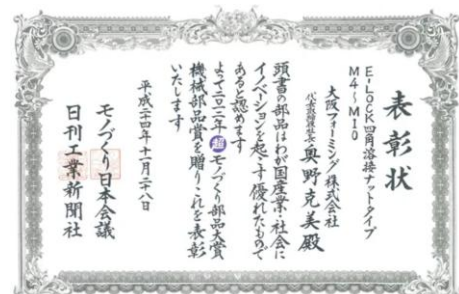 表彰状
E-LOCK四角溶接ナットタイプ
M4～M10
大阪フォーミング株式会社
代表取締役社長 奥野克美殿
頭書の部品はわが国産業・社会に
イノベーションを起こす優れたもので
あると認めます
よって二〇一二年 超 モノづくり部品大賞
機械部品賞を贈りこれを表彰
いたします
平成二十四年十一月二十八日
モノづくり日本会議
日刊工業新聞社